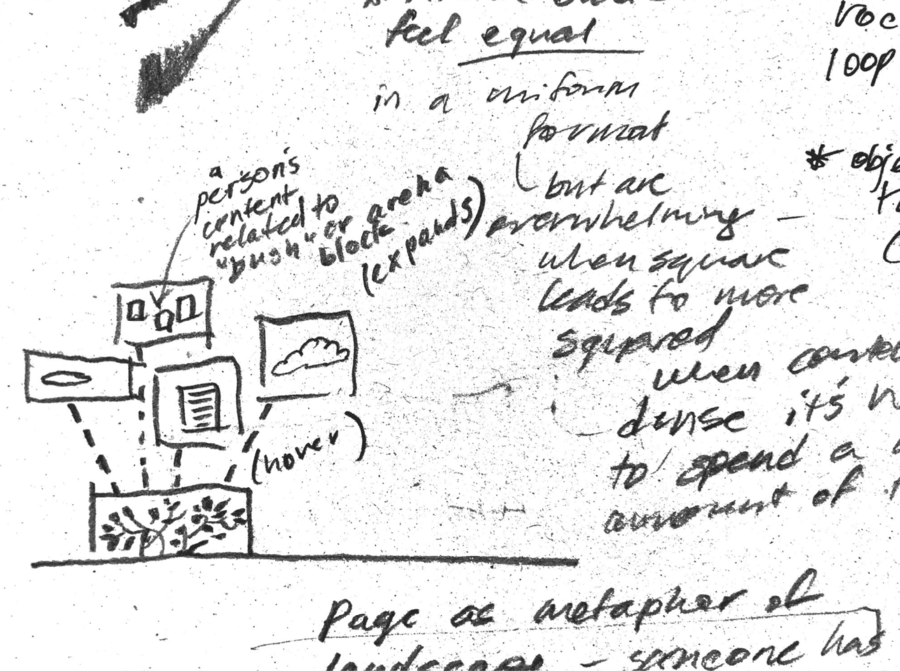 feel equal
in a uniform
format
but are
overwhelming -
when square
leads to more
squared
when
dense it's
to spend a
amount of
a
person's
content
related to
"bush" or arena
block
(expands)
(hover)
loop
*
Page as metaphor of
- someone has